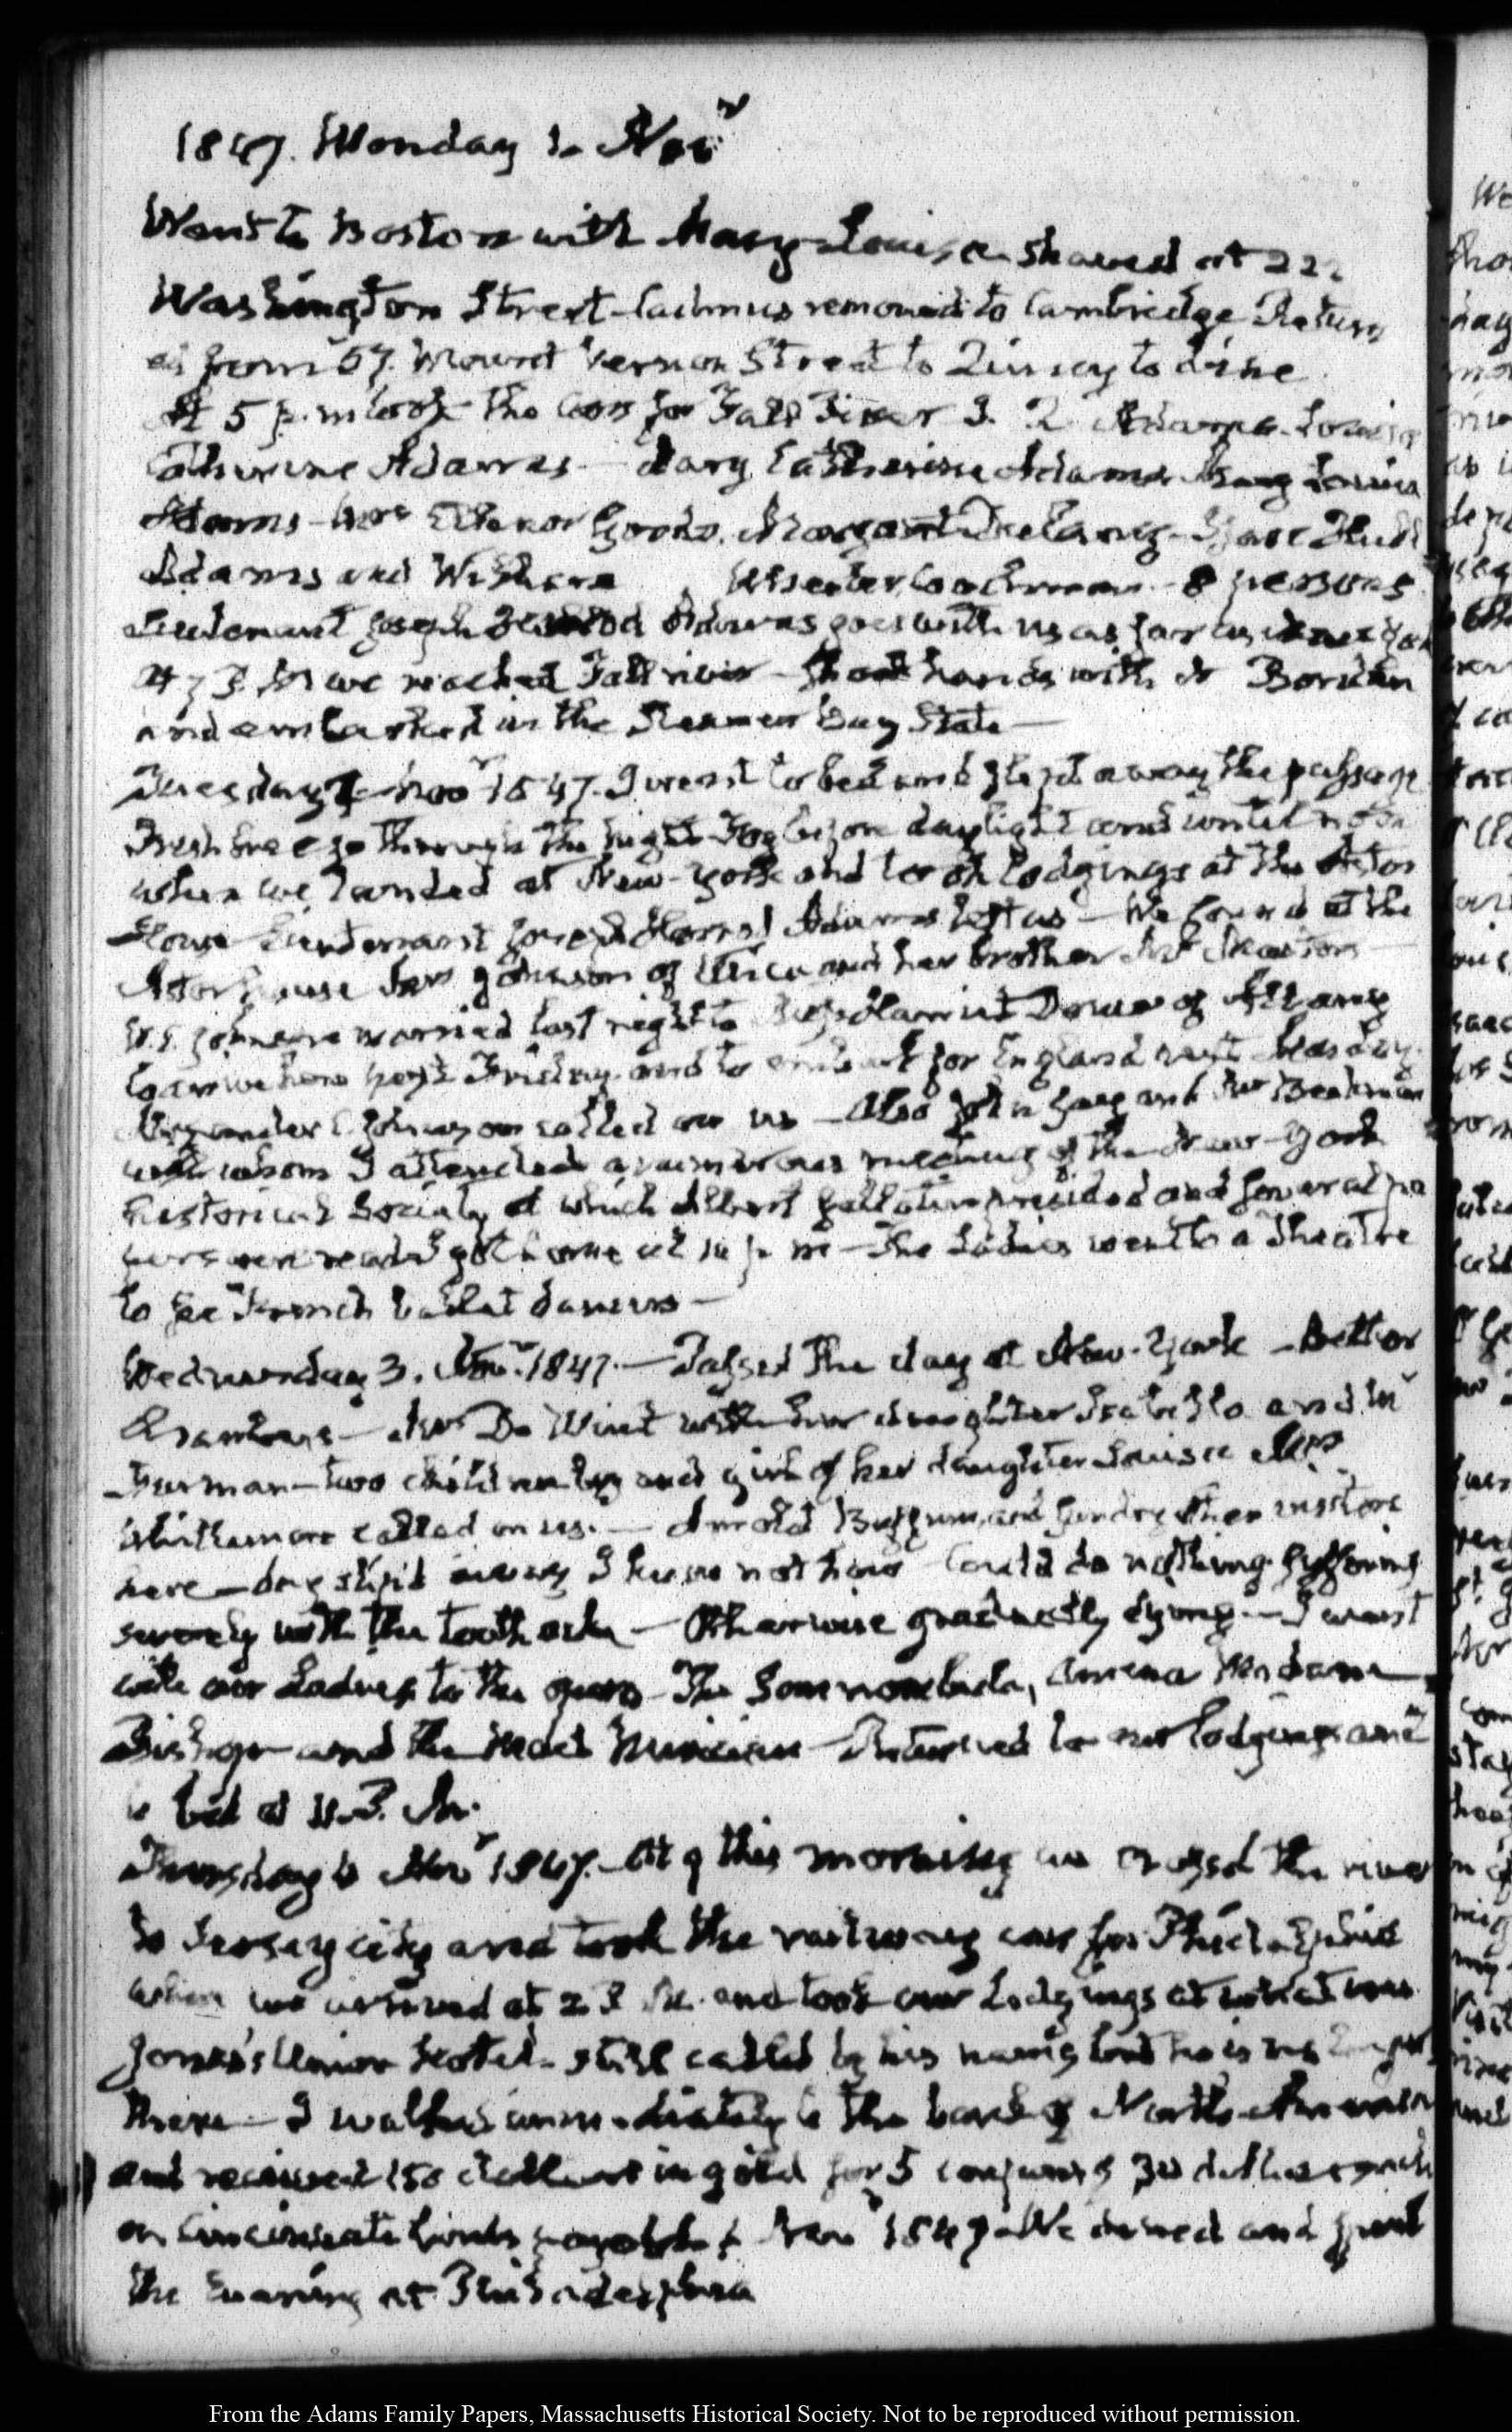 1847. Monday 1. Nov.r
Went to Boston with Mary Louisa shaved at 222
Washington Street. Cadmus removed to Cambridge Return
ed from 57. Mount Vernon Street to Quincy to dine
At 5 p.m took the Cars for Fall River J. Q. Adams. Louisa
Catherine Adams — Mary Catherine Adams Mary Louisa
Adams — Mrs Elleanor Margaret Delany
Adams and Coachman — 8 persons
Lieutenant Joseph Adams goes with us as far as New York
At 7 P.M we reached Fall river — Shook hands with Dr Borden
and embarked in the Steamer Bay State —
Tuesday 2. Nov.r 1847. I went to bed and slept away the passage
Fresh breeze through the night Fog before daylight and until noon
when we landed at New-York and took lodgings at the Astor
House Lieutenant Joseph Harrod Adams left us — We found at the
Astor house Mrs Johnson of Utica and her brother
W.S. Johnson married last night to Miss Harriet Dowe of Albany
to arrive here next Friday and to embark for England next Monday
Alexander Johnson called on us — also John Jay and Mr Beekman
with whom I attended a numerous meeting of the New-York
historical Society at which Albert Gallatin presided and several pa
pers were read I got home at 10 p m — The Ladies went to a Theatre
to see French ballet dancers —
Wednesday 3. Nov.r 1847. — Passed the day at New-York — better
— Mrs De Wint with her daughter Isabella and Mr
Furman — two children boy and girl of her daughter Louisa Miss
Whittemore called on us. — Arnold Buffum, and sundry other visitors
here — day slip'd away I know not how Could do nothing. Suffering
severely with the tooth ache — Otherwise gradually dying — I went
with our Ladies to the opera — The Somnambula, Amina Madame
Bishop — and the Returned to our lodgings and
to bed at 11. P. M.
Thursday 4 Nov.r 1847. — At 9 this morning we crossed the river
to Jersey city and took the railway cars for Philadelphia
where we arrived at 2 P. M. and took our Lodgings at what was
Jones's Union Hotel — still called by his name, but he is no longer
there — I walked immediately to the bank of North America
and received 150 dollars in gold for 5 coupons of 30 dollars each
on Cincinnati bonds payable 1 Nov.r 1847 — We dined and spent
the Evening at Philadelphia
From the Adams Family Papers, Massachusetts Historical Society. Not to be reproduced without permission.